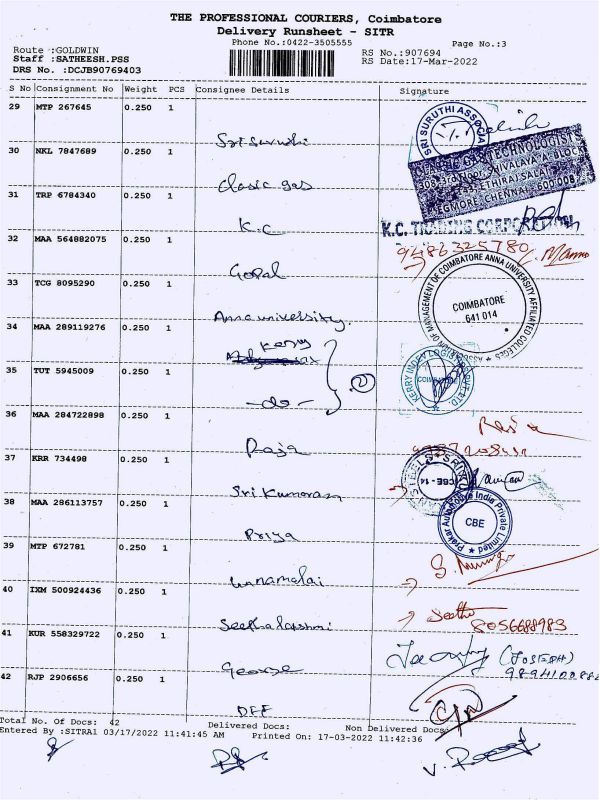 THE PROFESSIONAL COURIERS, Coimbatore
Delivery Runsheet - SITR
Phone No.:0422-3505555
Page No.:3
Route :GOLDWIN
Staff :SATHEESH.PSS
DRS No. :DCJB90769403
RS No.:907694
RS Date:17-Mar-2022
S No Consignment No Weight PCS Consignee Details Signature
29 MTP 267645 0.250 1
Sri Suruthi
SRI SURUTHI ASSOCIA
30 NKL 7847689 0.250 1
Clasic gas
TECHNOLOGISTS
EGMORE, CHENNAI, 600 008
31 TRP 6784340 0.250 1
K.C
K.C. TRADING CORPORATION
32 MAA 564882075 0.250 1
Gopal
9486325780
33 TCG 8095290 0.250 1
Anna university.
ASSOCIATION OF MANAGEMENT OF COIMBATORE ANNA UNIVERSITY AFFILIATED COLLEGES
COIMBATORE
641 014
34 MAA 289119276 0.250 1
Kerry
35 TUT 5945009 0.250 1
-do-
(2)
KERRY INDEV LOGISTICS PVT LTD
36 MAA 284722898 0.250 1
Raja
37 KRR 734498 0.250 1
Sri Kumaran
CBE - 14
38 MAA 286113757 0.250 1
Priya
Prakar Automotive India Private Limited
CBE
39 MTP 672781 0.250 1
Unnamalai
40 IXM 500924436 0.250 1
Seethalakshmi
Seetha
8056688983
41 KUR 558329722 0.250 1
George
(JOSEPH)
42 RJP 2906656 0.250 1
DEE
Total No. Of Docs: 42 Delivered Docs: Non Delivered Docs:
Entered By :SITRA1 03/17/2022 11:41:45 AM Printed On: 17-03-2022 11:42:36